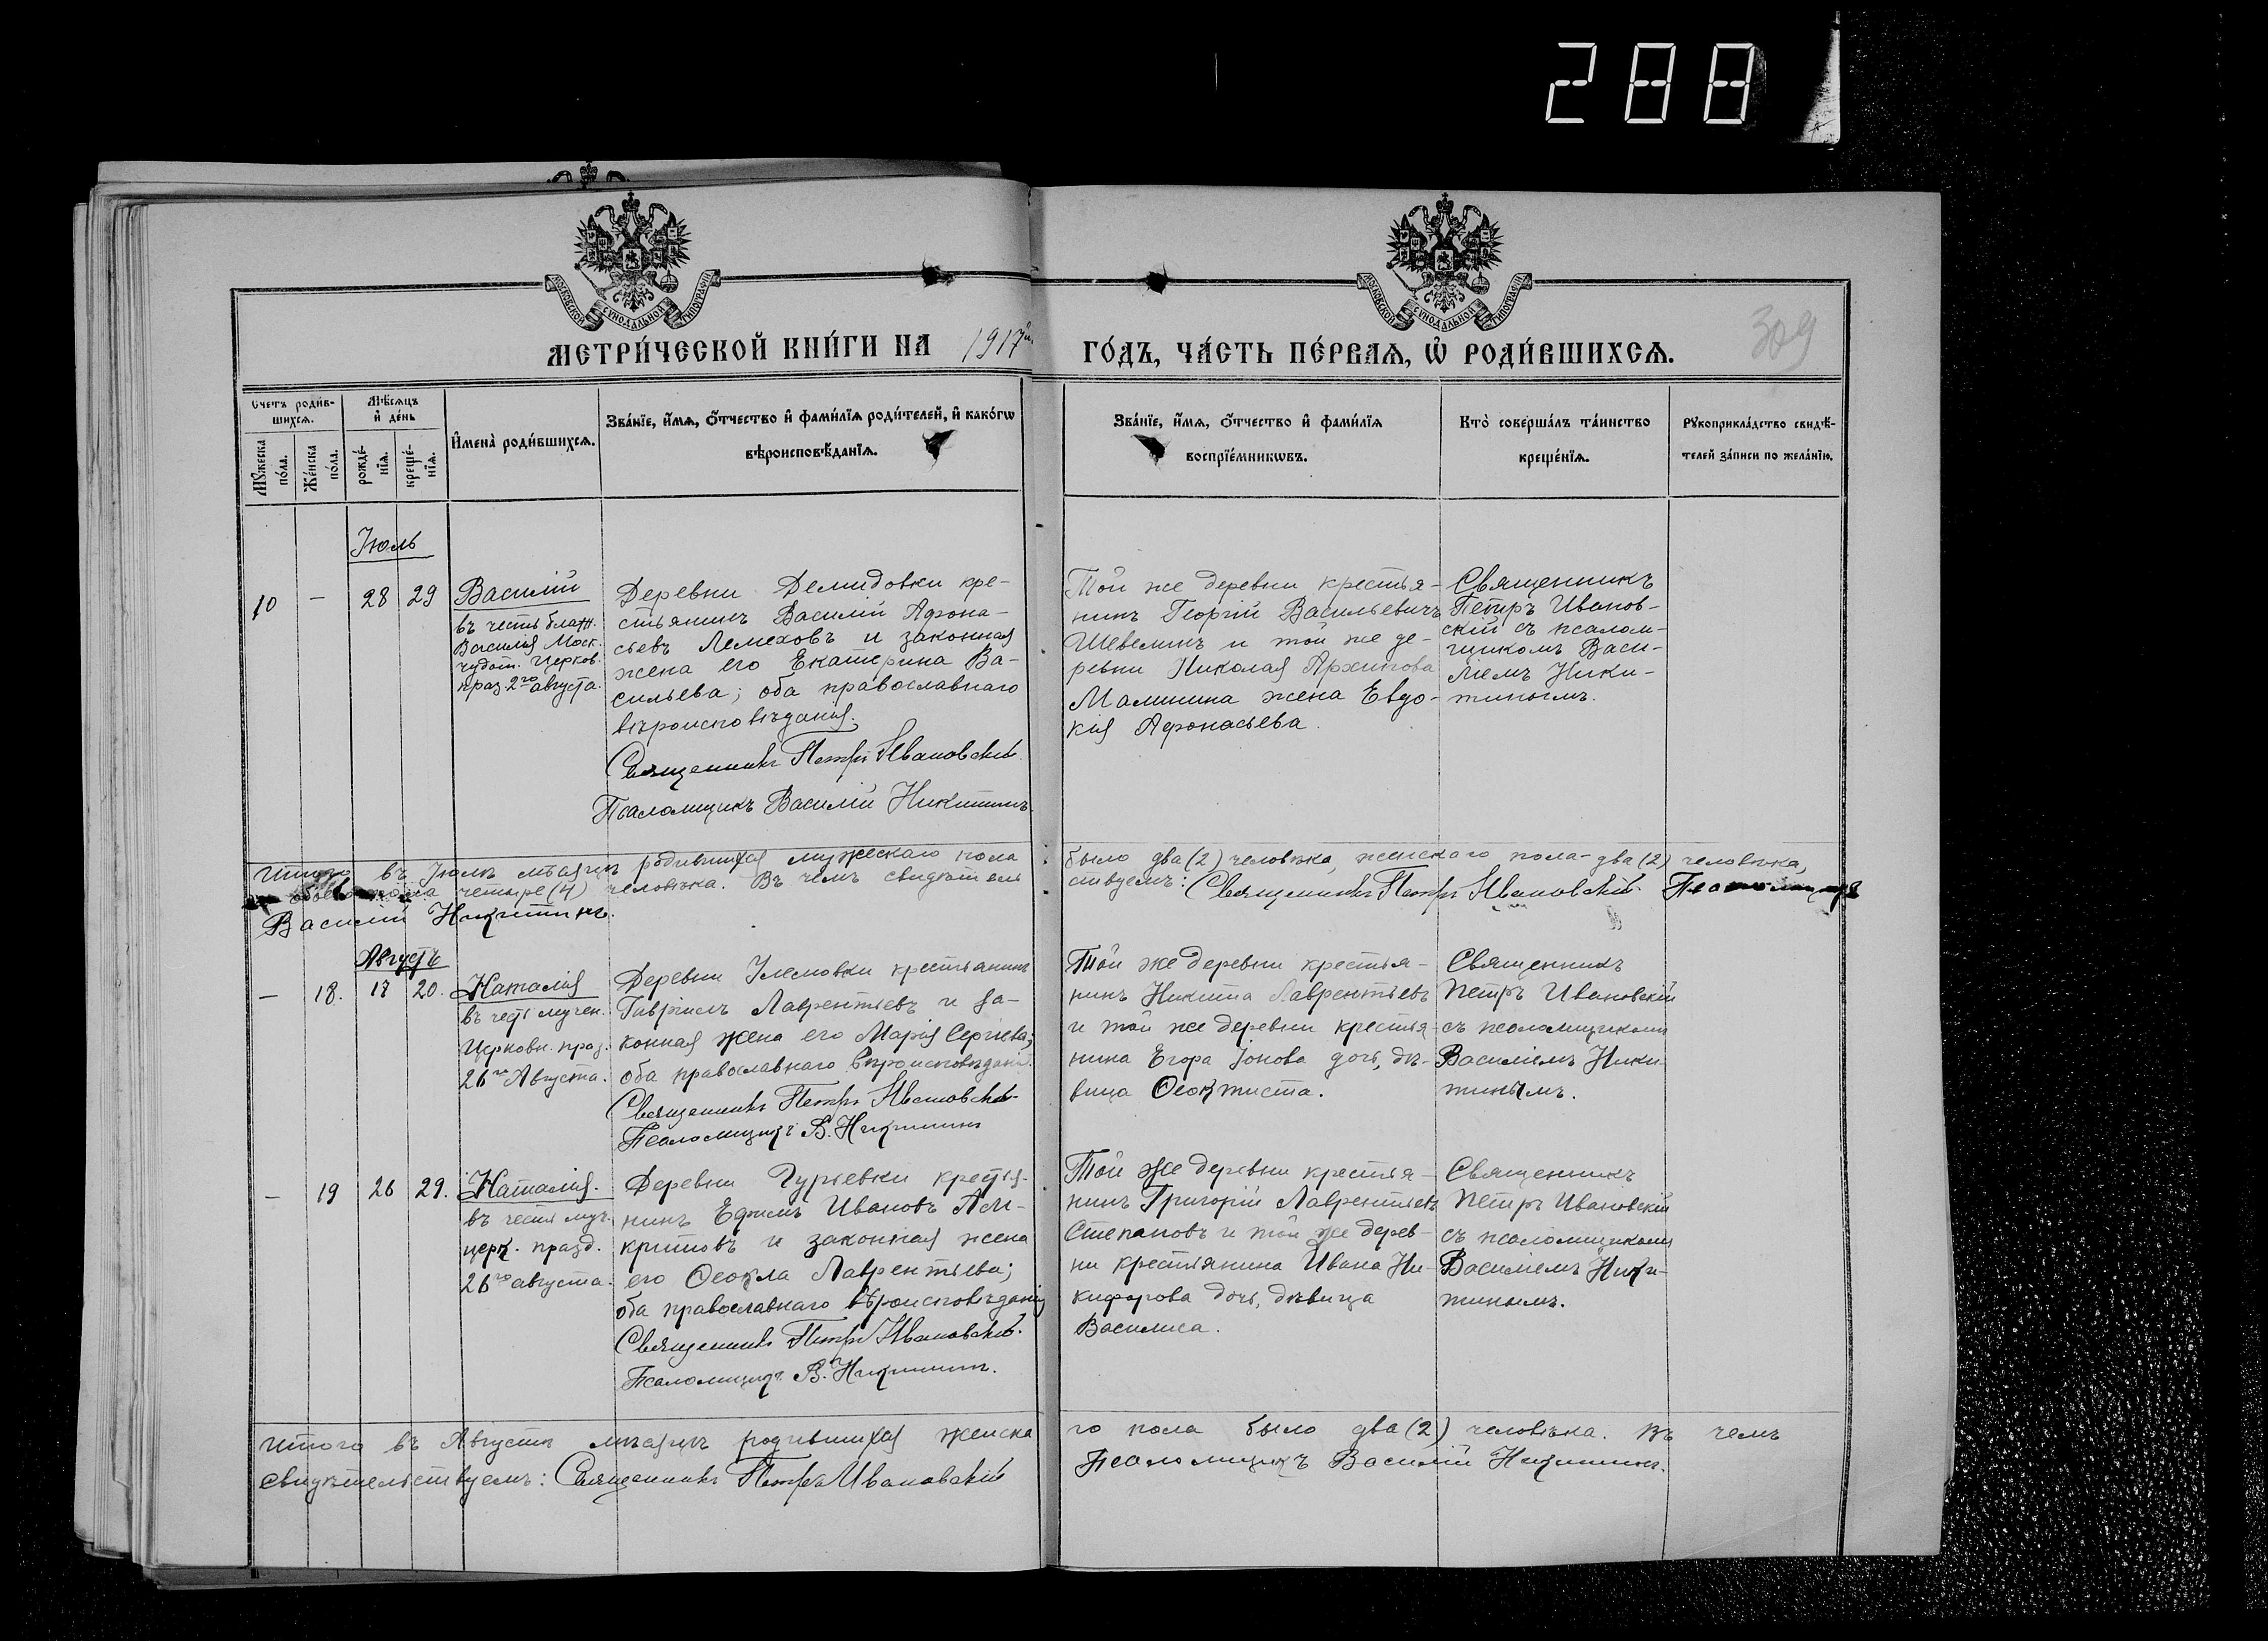 288
МОСКОВСКОЙ СѴНОДАЛЬНОЙ ТИПОГРАФІИ
МОСКОВСКОЙ СѴНОДАЛЬНОЙ ТИПОГРАФІИ
МЕТРИ́ЧЕСКОЙ КНИ́ГИ НА 1917й ГО́ДЪ, ЧА́СТЬ ПЕ́РВАѦ, Ѡ҆ РОДИ́ВШИХСѦ.
309
Счетъ роди́в-
шихсѧ.
Мѣ́сѧцъ
и҆ де́нь
Мꙋ́жеска
по́ла.
Же́нска
по́ла.
рожде́-
нїѧ.
креще́-
нїѧ.
И҆мена̀ роди́вшихсѧ.
Зва́нїе, и҆́мѧ, ѻ҆́тчество и҆ фами́лїѧ роди́телей, и҆ како́гѡ
вѣроисповѣ́данїѧ.
Зва́нїе, и҆́мѧ, ѻ҆́тчество и҆ фами́лїѧ
воспрїе́мникѡвъ.
Кто̀ соверша́лъ та́инство
креще́нїѧ.
Рꙋкоприкла́дство свидѣ́-
телей за́писи по жела́нїю.
Іюль
10 — 28 29
Василій
въ честь блаж.
Василія Моск.
чудот. Церков.
праз. 2го августа.
Деревни Демидовки кре-
стьянинъ Василій Афона-
сьевъ Лемеховъ и законная
жена его Екатерина Ва-
сильева; оба православнаго
вѣроисповѣданія.
Священникъ Петръ Ивановскій
Псаломщикъ Василій Никитинъ.
Той же деревни крестья-
нинъ Георгій Васильевичъ
Шевелинъ и той же де-
ревни Николая Архипова
Малинина жена Евдо-
кія Афонасьева.
Священникъ
Петръ Иванов-
скій съ псалом-
щикомъ Васи-
ліемъ Ники-
тинымъ.
Итого въ Іюлѣ мѣсяцѣ родившихся мужескаго пола было два (2) человѣка, женскаго пола - два (2) человѣка,
обоего пола четыре (4) человѣка. Въ чемъ свидѣтель ствуемъ: Священникъ Петръ Ивановскій. Псаломщикъ
Василій Никитинъ.
Августъ
— 18. 17 20.
Наталія
въ честь мучен.
Церковн. праз.
26го Августа.
Деревни Улемовки крестьянинъ
Гавріилъ Лаврентьевъ и за-
конная жена его Марія Сергіева;
оба православнаго вѣроисповѣдані
Священникъ Петръ Ивановскій
Псаломщикъ В. Никитинъ
Той же деревни крестья-
нинъ Никита Лаврентьевъ
и той же деревни крестья-
нина Егора Іонова дочь, дѣ-
вица Ѳеоктиста.
Священникъ
Петръ Ивановскій
съ псаломщикомъ
Василіемъ Ники-
тинымъ.
— 19 26 29.
Наталія.
въ честь муч.
церк. празд.
26го августа.
Деревни Гурьевки крестья-
нинъ Ефимъ Ивановъ Аси-
критовъ и законная жена
его Ѳеокла Лаврентьева;
оба православнаго вѣроисповѣданія
Священникъ Петръ Ивановскій.
Псаломщикъ В. Никитинъ.
Той же деревни крестья-
нинъ Григорій Лаврентьевъ
Степановъ и той же дерев-
ни крестьянина Ивана Ни-
кифорова дочь, дѣвица
Василиса.
Священникъ
Петръ Ивановскій
съ псаломщикомъ
Василіемъ Ники-
тинымъ.
Итого въ Августѣ мѣсяцѣ родившихся женска го пола было два (2) человѣка. Въ чемъ
свидѣтельствуемъ: Священникъ Петръ Ивановскій Псаломщикъ Василій Никитинъ.